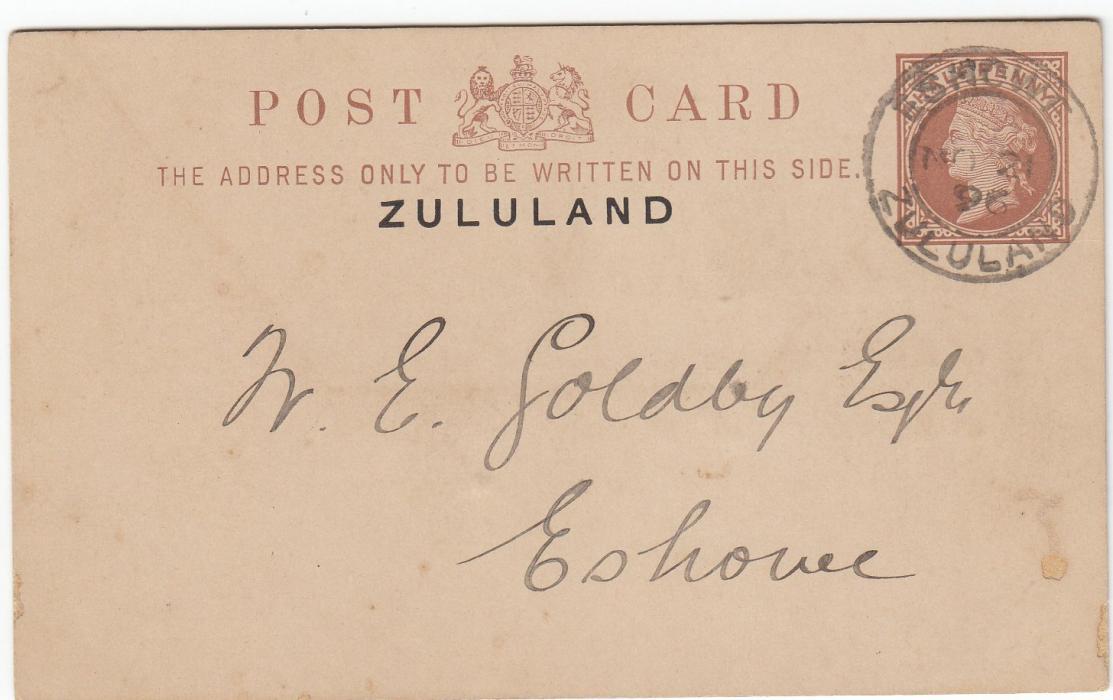 POST CARD
THE ADDRESS ONLY TO BE WRITTEN ON THIS SIDE.
ZULULAND
ZULULAND
W. E. Goldby Esqr
Eshowe